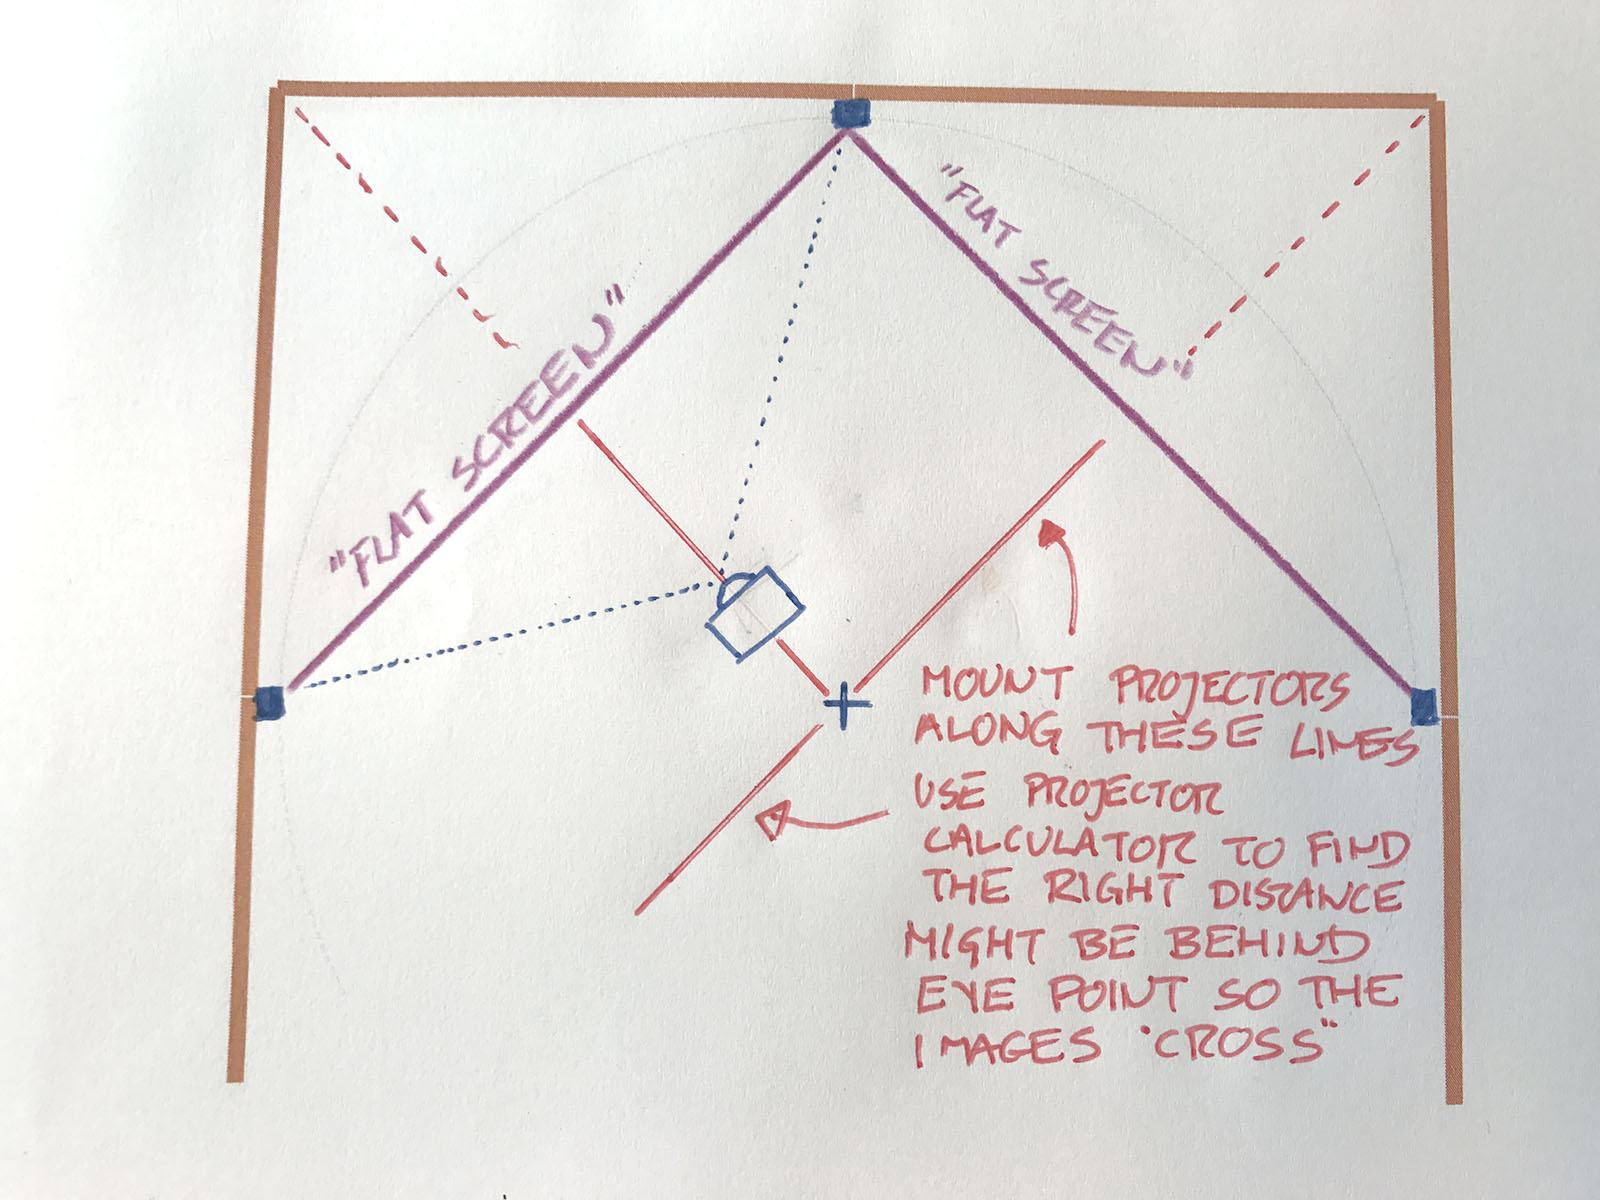 "FLAT SCREEN"
"FLAT SCREEN"
MOUNT PROJECTORS
ALONG THESE LINES
USE PROJECTOR
CALCULATOR TO FIND
THE RIGHT DISTANCE
MIGHT BE BEHIND
EYE POINT SO THE
IMAGES "CROSS"